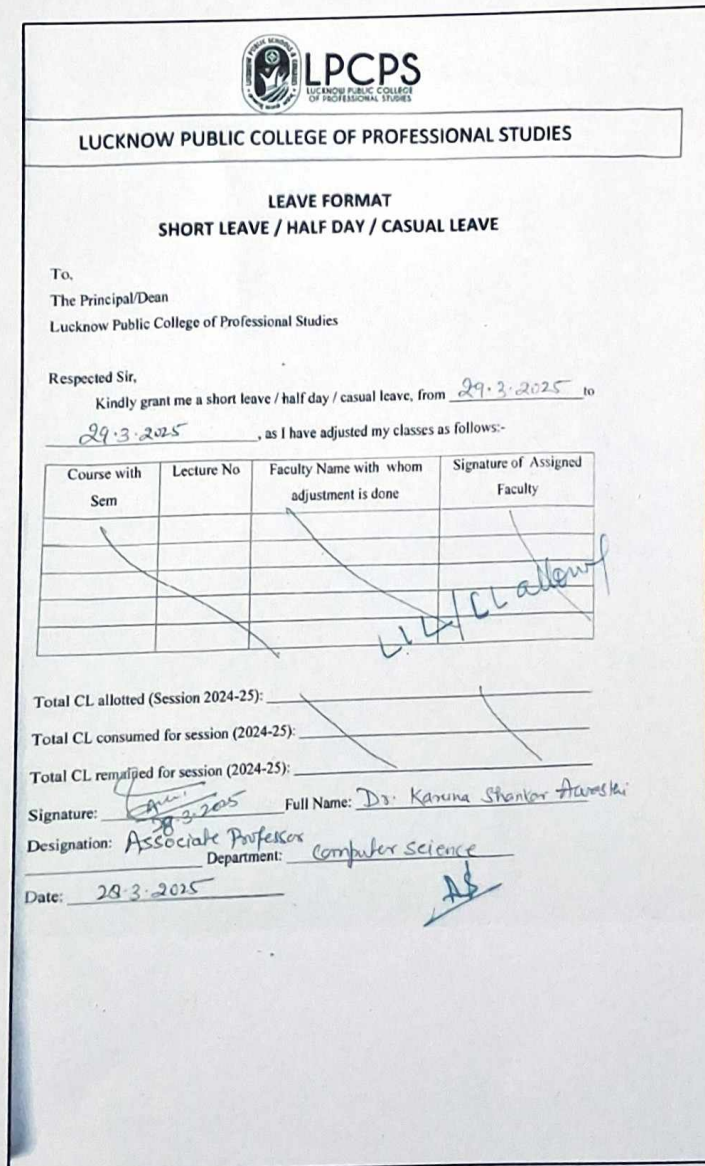 LPCPS
LUCKNOW PUBLIC COLLEGE
OF PROFESSIONAL STUDIES
LUCKNOW PUBLIC COLLEGE OF PROFESSIONAL STUDIES
LEAVE FORMAT
SHORT LEAVE / HALF DAY / CASUAL LEAVE
To,
The Principal/Dean
Lucknow Public College of Professional Studies
Respected Sir,
Kindly grant me a short leave / half day / casual leave, from 29.3.2025 to
29.3.2025, as I have adjusted my classes as follows:-
Course with Sem Lecture No Faculty Name with whom adjustment is done Signature of Assigned Faculty
CL allow
Total CL allotted (Session 2024-25):
Total CL consumed for session (2024-25):
Total CL remained for session (2024-25):
Signature: 28.3.2025 Full Name: Dr. Karuna Shankar Awasthi
Designation: Associate Professor
Department: Computer Science
Date: 28.3.2025
AS